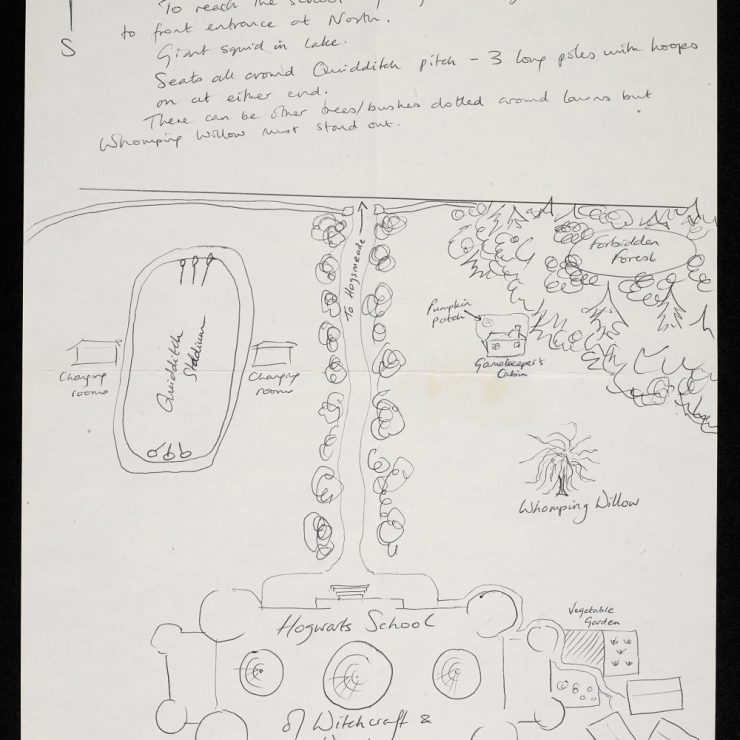 To reach the school
to front entrance at North.
S
Giant squid in lake.
Seats all around Quidditch pitch – 3 long poles with hoops
on at either end.
There can be other trees/bushes dotted around lawns but
Whomping Willow must stand out.
To Hogsmeade
Forbidden
Forest
Pumpkin
patch
Gamekeeper's
Cabin
Quidditch
Stadium
Changing
rooms
Changing
rooms
Whomping Willow
Vegetable
Garden
Hogwarts School
of Witchcraft &